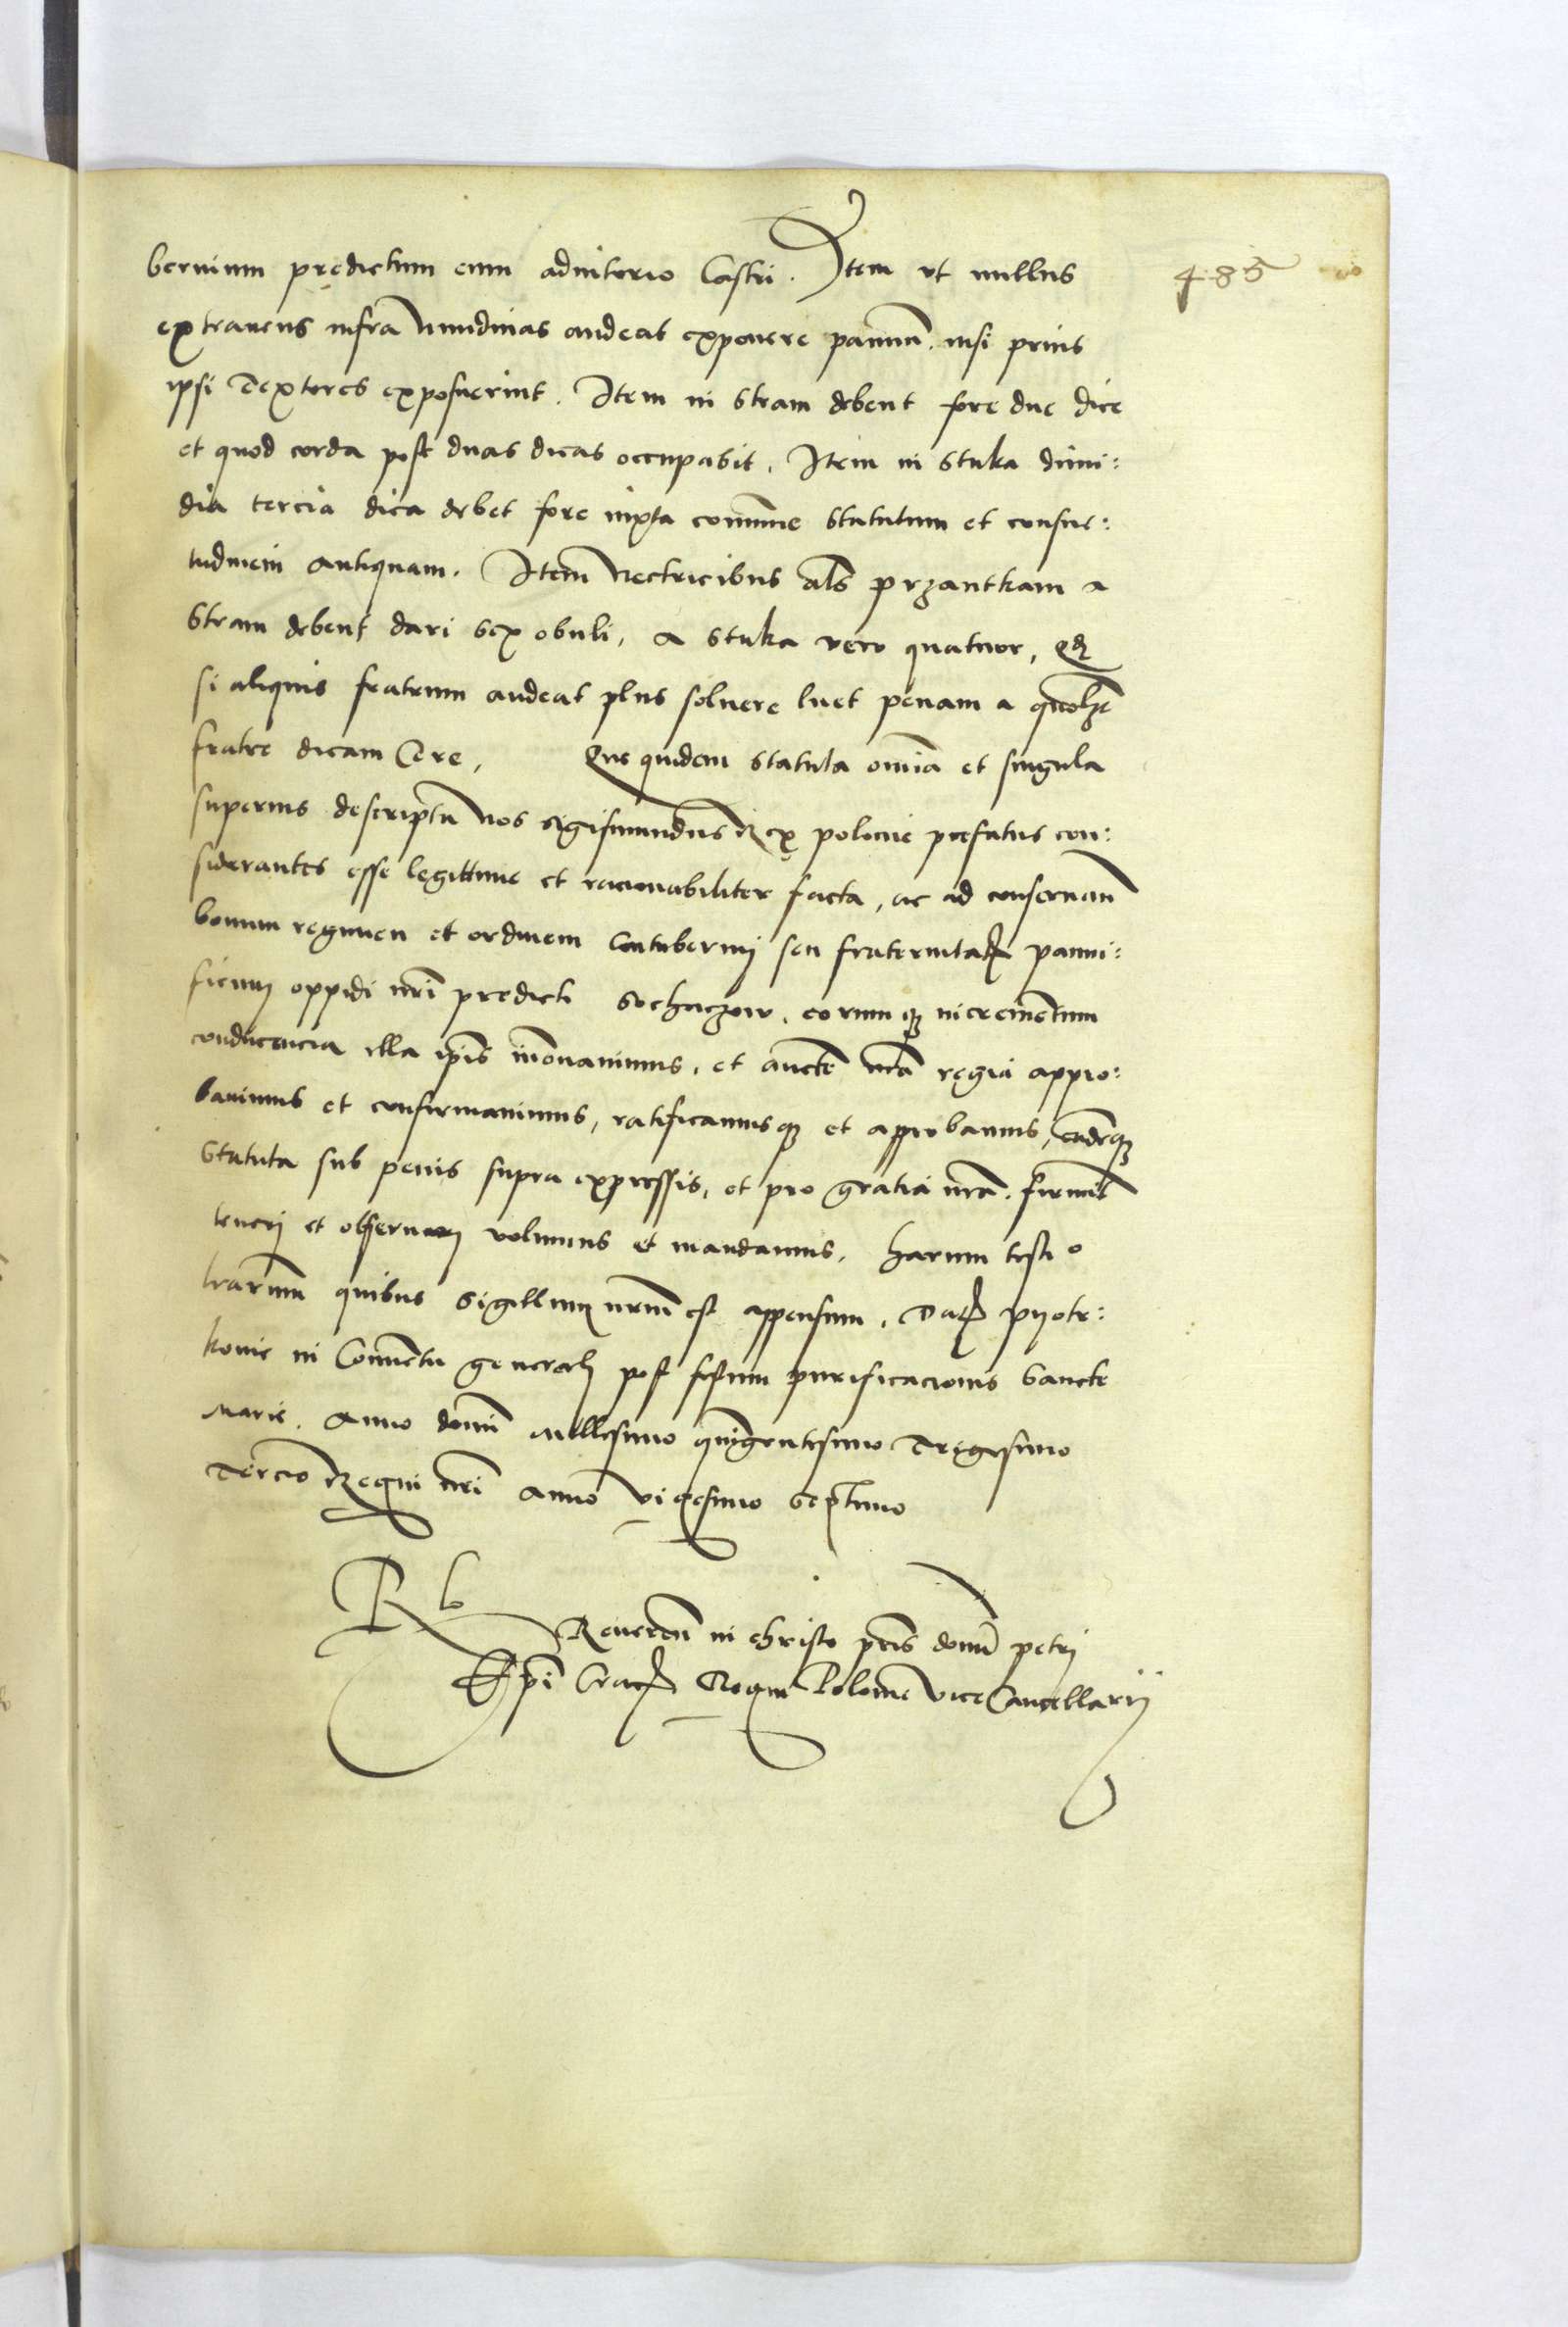 bernium prędictum cum adiutorio Castri. Item vt nullus
485
extraneus infra nundinas audeat exponere pannum. nisi prius
ipsi Textores exposuerint. Item in stram debent fore due dice
et quod corda post duas dicas occupabit. Item in stuka dimi:
dia tercia dica debet fore iuxta commune statutum et consue:
tudinem antiquam. Item Nectricibus als przantkam a
stram debent dari sex obuli, a stuka vero quatuor, Qd
si aliquis fratrum audeat plus soluere luet penam a quolꝫt
fratre dicam Cere, Que quidem statuta omīa et singula
superius descripta nos Sigismundus Rex polonie prefatus con:
siderantes esse legittime et racionabiliter facta, ac ad conseruan
bonum regimen et ordinem Contubernij seu fraternitaꝭ panni:
ficum oppidi nrī predicti Sochaczow. eorumqꝫ incrementum
conducencia illa ipīs innouauimus, et aucte nrā regia appro:
bauimus et confirmauimus, ratificamusqꝫ et approbamus, eademqꝫ
Statuta sub penis supra expressis, et pro gratia nrā. firmit
teneri et obseruari volumus et mandamus. harum testio
lrarum quibus Sigillum nrūm est appensum. Datꝭ pyotr:
kovie in Conuentu generali post festum purificacionis Sancte
Marie. Anno domī Millesimo quingentesimo Trigesimo
Tercio Regni nrī Anno vigesimo Septimo
Rlo
Reuerēn in christo prīs domī petri
Epī Crac Regni Polonie ViceCancellarij